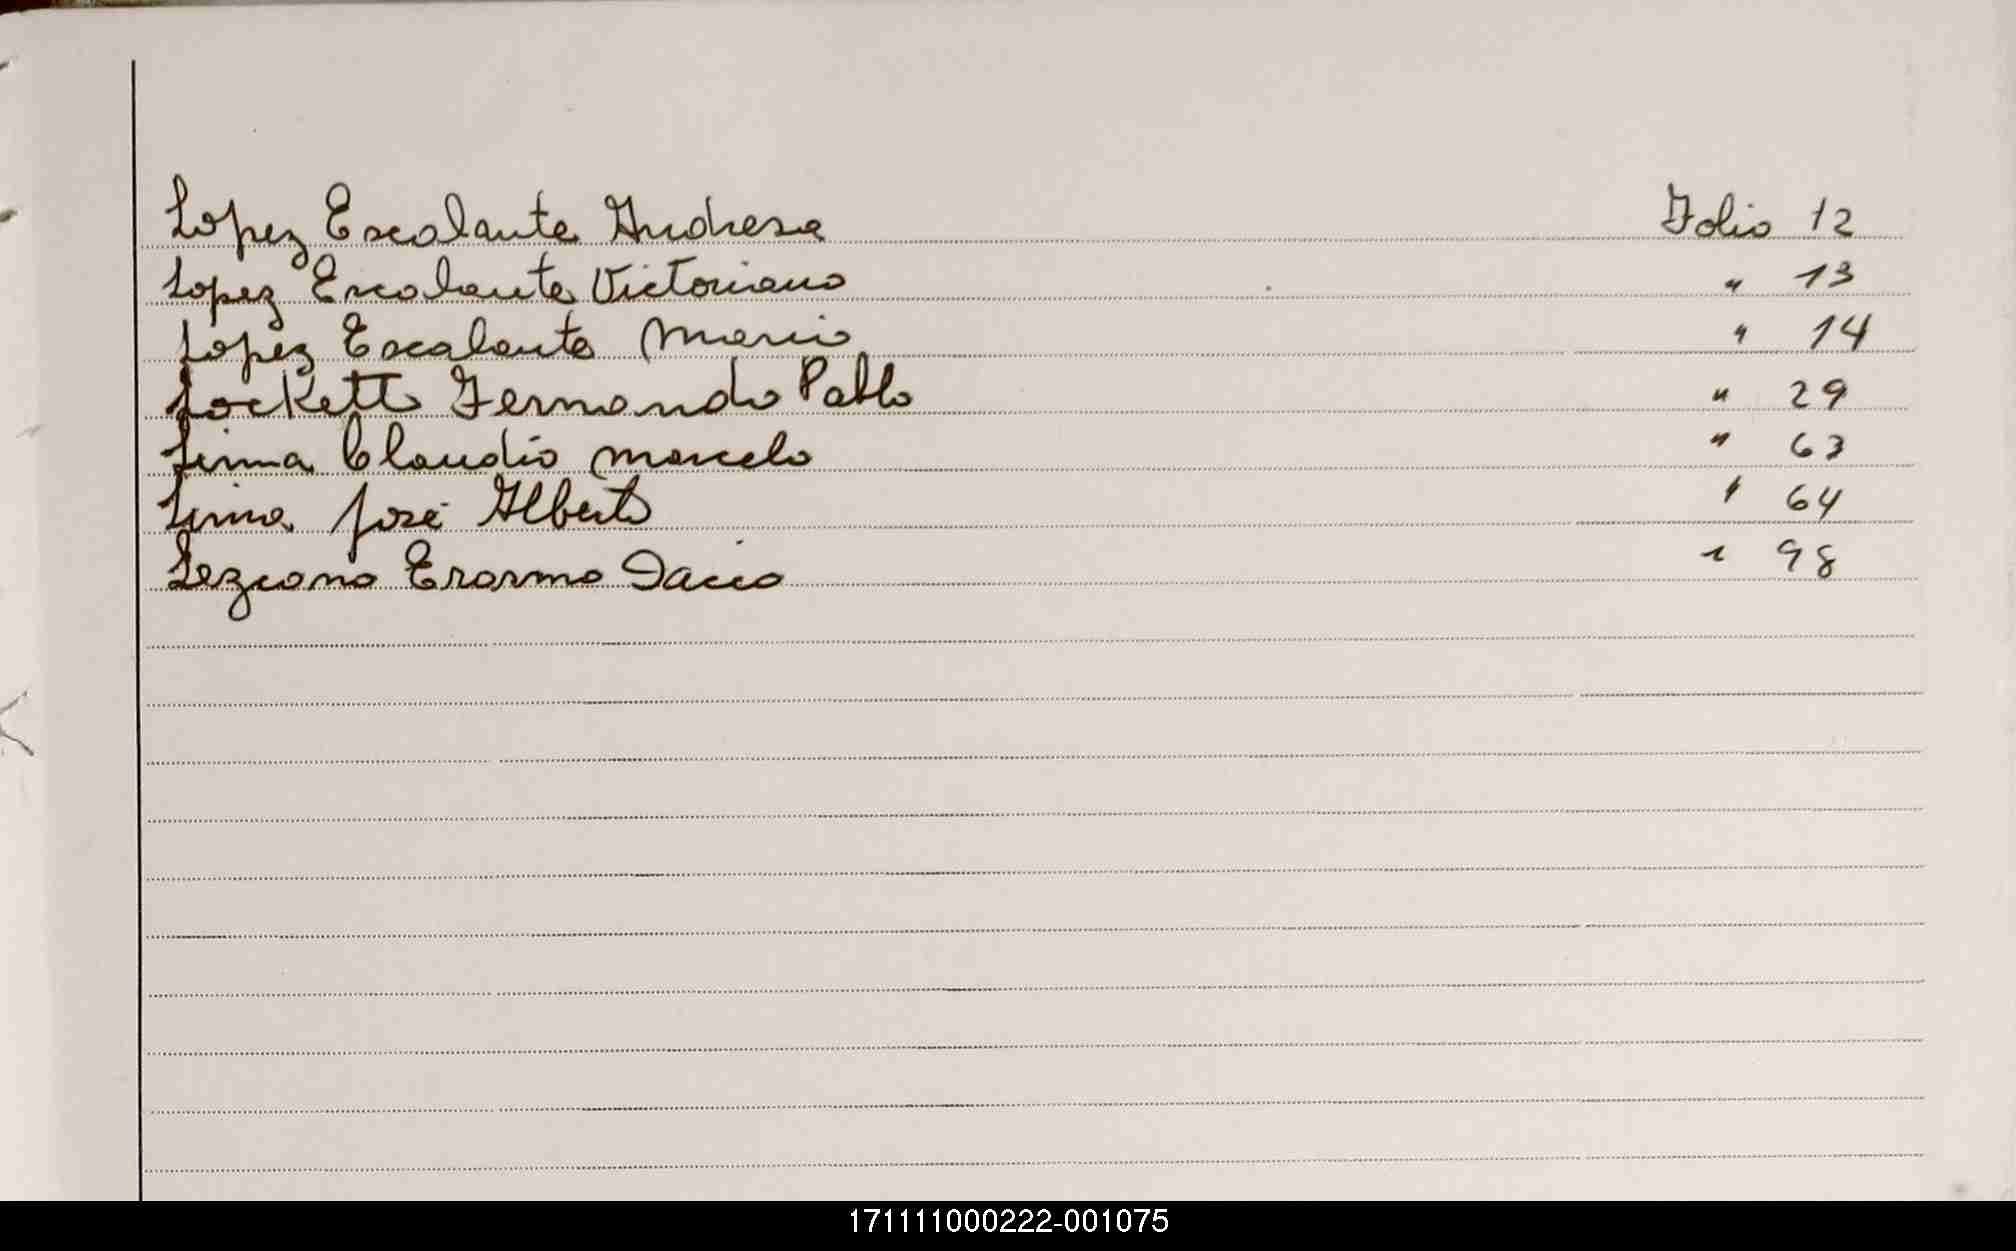 Lopez Escalante Andresa Folio 12
Lopez Escalante Victoriano " 13
Lopez Escalante Mario " 14
Lockett Fernando Pablo " 29
Lima Claudio Marcelo " 63
Lima José Alberto " 64
Lezcano Erasmo Dacio " 98
171111000222-001075